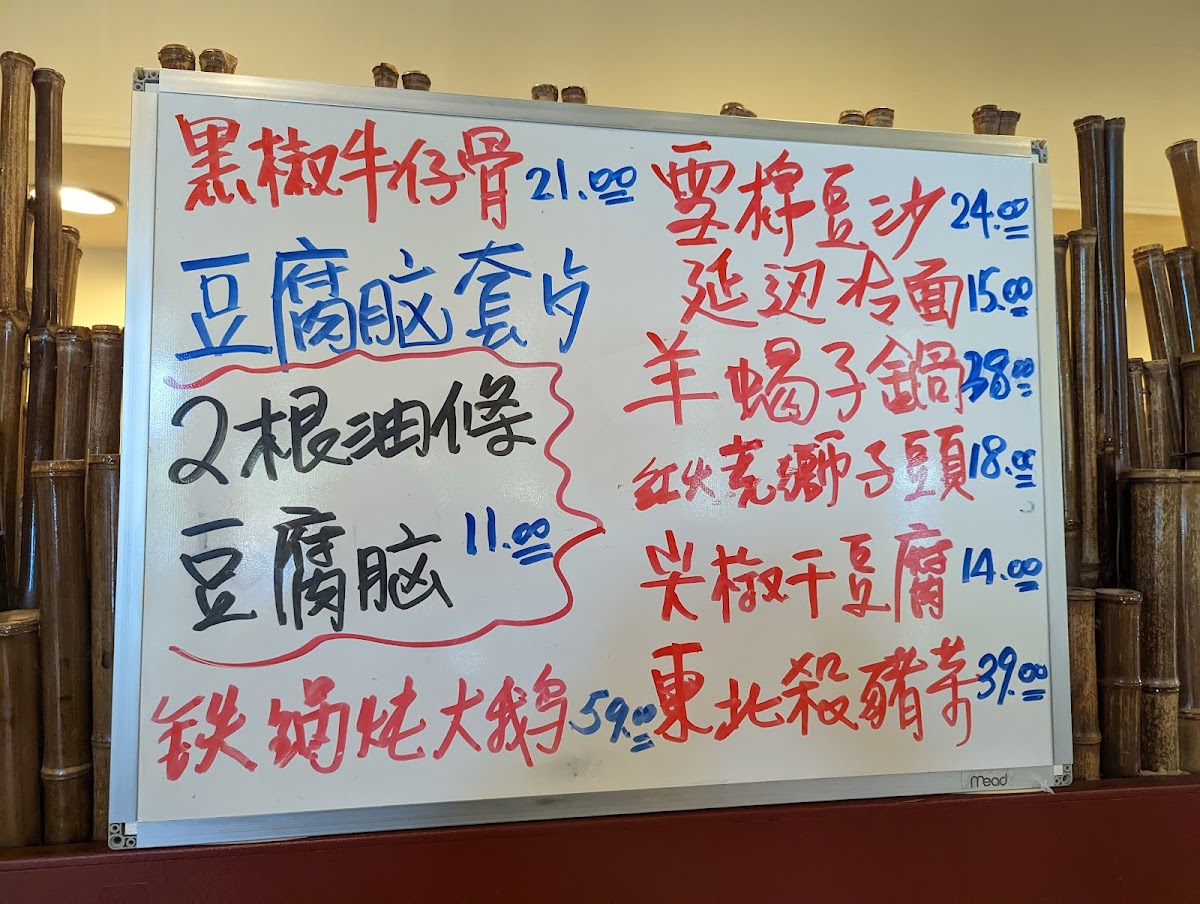 黑椒牛仔骨 21.00
豆腐脑套歺
2根油條
豆腐脑 11.00
铁锅炖大鹅 59.00
雪棉豆沙 24.00
延边冷面 15.00
羊蝎子鍋 38.00
红火烧狮子頭 18.00
尖椒干豆腐 14.00
東北殺豬菜 39.00
Mead